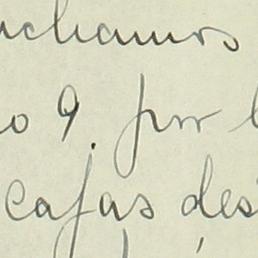 uchamos
o 9. por l
cajas des